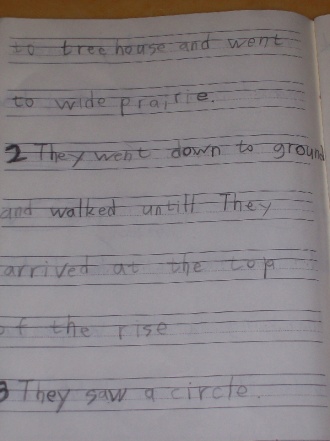 to tree house and went
to wide prairie.
2 They went down to ground
and walked untill They
arrived at the top
of the rise
3 They saw a circle.